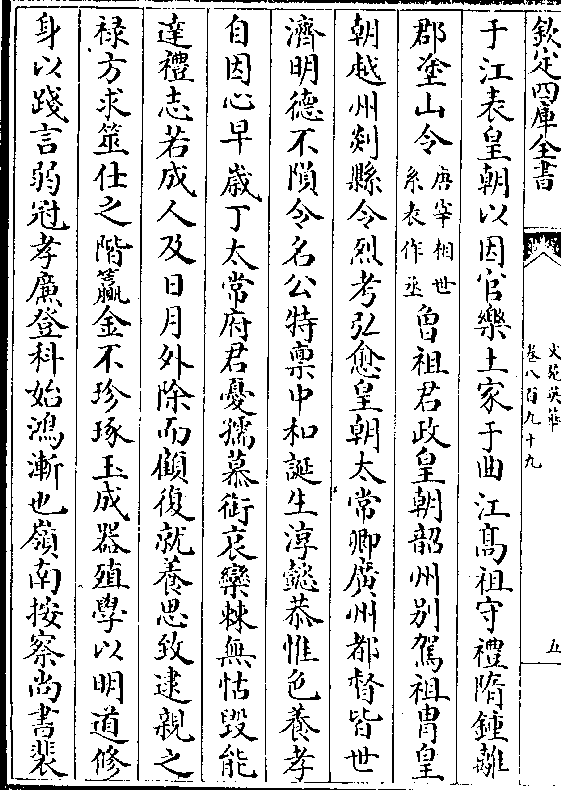 欽定四庫全書
文苑英華
卷八百九十九
五
于江表皇朝以因官樂土家于曲江髙祖守禮隋鍾離
郡塗山令唐宰相世系表作丞曾祖君政皇朝韶州别駕祖胄皇
朝越州剡縣令烈考弘愈皇朝太常卿廣州都督皆世
濟明德不隕令名公特禀中和誕生淳懿恭惟色養孝
自因心早歲丁太常府君憂孺慕銜哀欒棘無怙毁能
達禮志若成人及日月外除而顧復就養思致逮親之
禄方求筮仕之階籯金不珍琢玉成器殖學以明道修
身以踐言弱冠孝廉登科始鴻漸也嶺南按察尚書裴